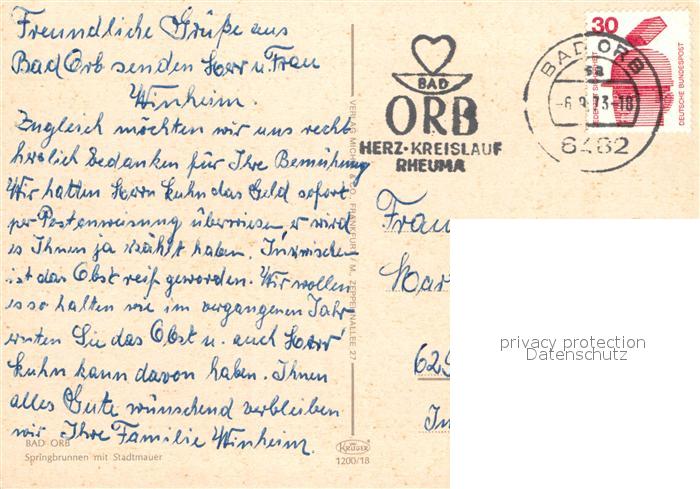 Freundliche Grüße aus
Bad Orb senden Herr u. Frau
Winheim.
Zugleich möchten wir uns recht
herzlich bedanken für Ihre Bemühung
Wir hatten Herrn Kuhn das Geld sofort
per Postanweisung überwiesen, er wird
es Ihnen ja erzählt haben. Inzwischen
ist das Obst reif geworden. Wir wollen
es so halten wie im vergangenen Jahr
ernten Sie das Obst u. auch Herr
Kuhn kann davon haben. Ihnen
alles Gute wünschend verbleiben
wir Ihre Familie Winheim.
BAD ORB
Springbrunnen mit Stadtmauer
VERLAG MICHEL & CO. FRANKFURT/M. ZEPPELINALLEE 27
KRÜGER
1200/18
BAD
ORB
HERZ·KREISLAUF
RHEUMA
BAD ORB
sa
-6.9.73-18
6482
30
JEDERZEIT SICHERHEIT
DEUTSCHE BUNDESPOST
Frau
Mar
625
In
privacy protection
Datenschutz